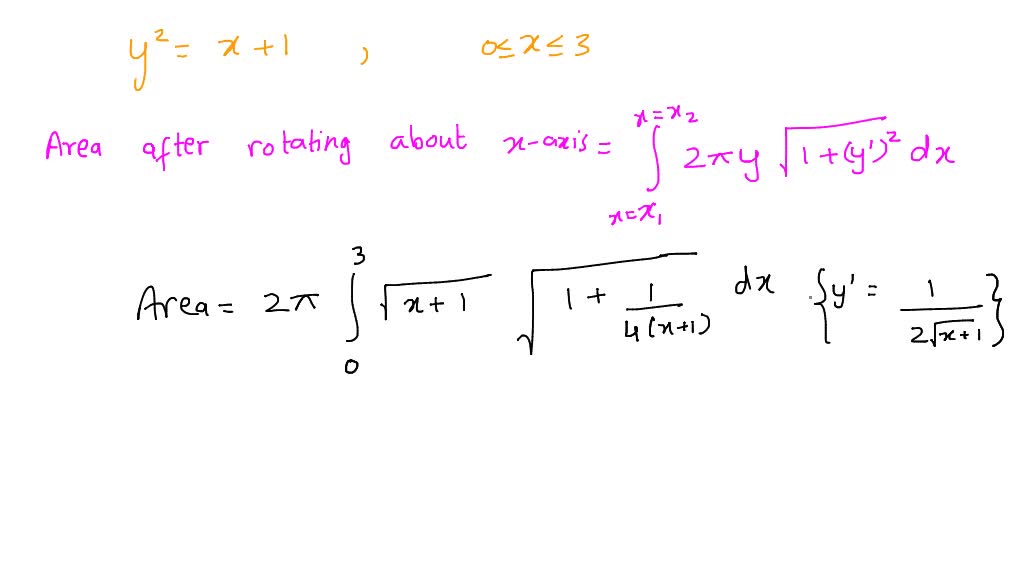 y² = x + 1 , 0 ≤ x ≤ 3
Area after rotating about x-axis = ∫_{x=x₁}^{x=x₂} 2πy √(1 + (y')²) dx
Area = 2π ∫_{0}^{3} √(x + 1) √(1 + 1/(4(x+1))) dx {y' = 1/(2√(x+1))}